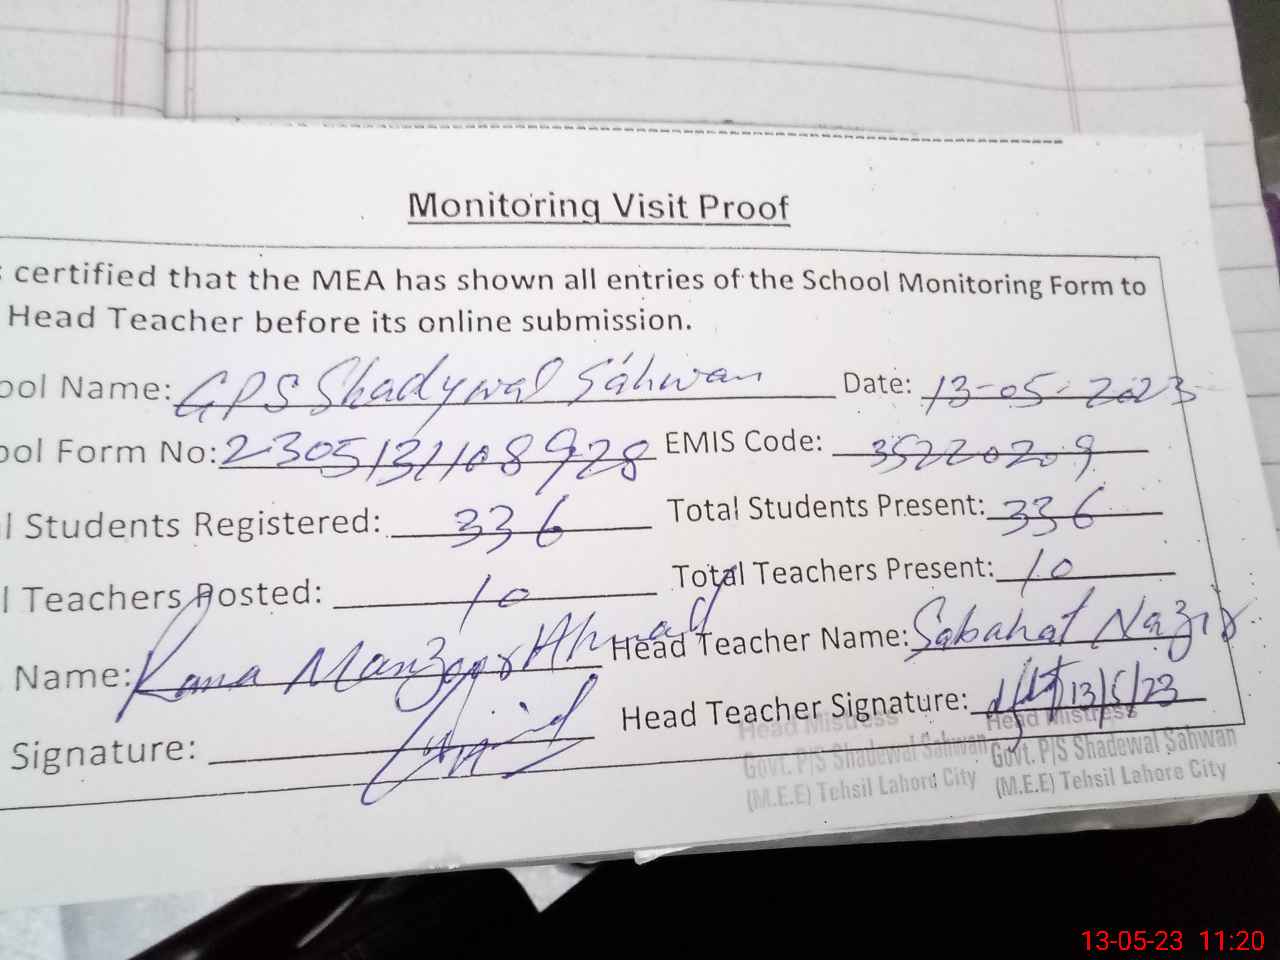 Monitoring Visit Proof
certified that the MEA has shown all entries of the School Monitoring Form to
Head Teacher before its online submission.
ool Name: GPS Shadywal Sahwan Date: 13-05-2023
ool Form No: 230513108928 EMIS Code: 35220209
l Students Registered: 336 Total Students Present: 336
l Teachers Posted: 10 Total Teachers Present: 10
Name: Rana Manzoor Ahmad Head Teacher Name: Sabahat Nazir
Signature: Head Teacher Signature: 13/5/23
Head Mistress Head Mistress
Govt. P/S Shadewal Sahwan Govt. P/S Shadewal Sahwan
(M.E.E) Tehsil Lahore City (M.E.E) Tehsil Lahore City
13-05-23 11:20